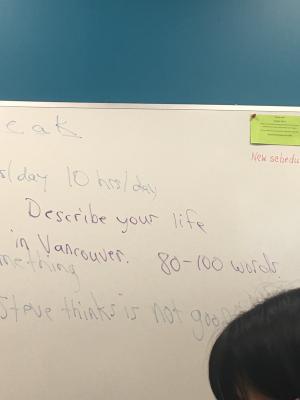 eak
New schedu
s/day 10 hrs/day
Describe your life
in Vancouver. 80-100 words.
mething
Steve thinks is not good